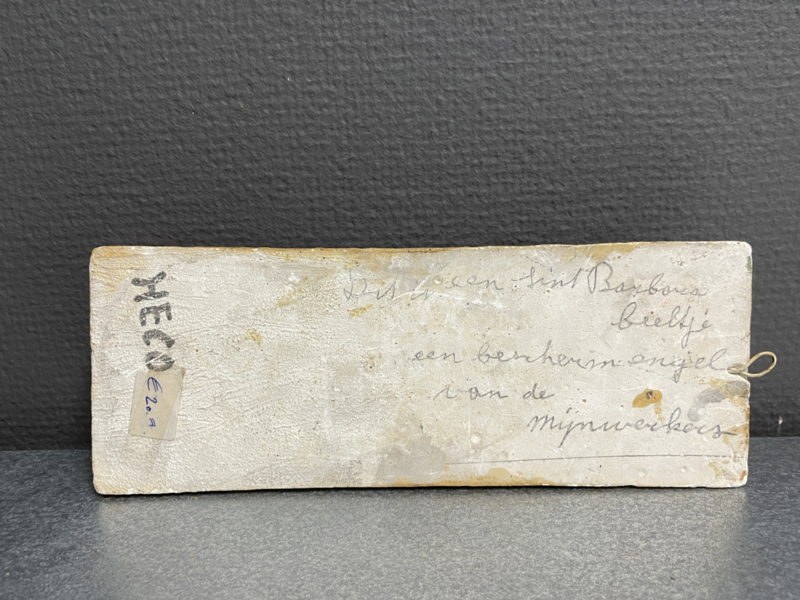 Dit is een Sint Barbara
beeltje
een bescherm engel
van de
mijnwerkers
HECO
€ 20.-